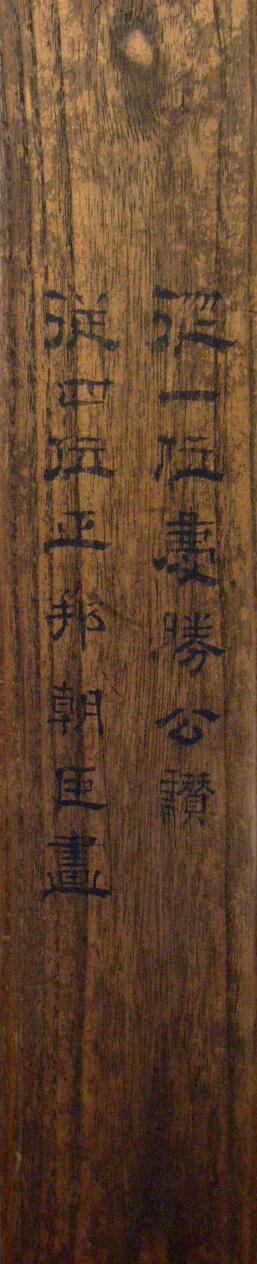 從一位慶勝公讃
従四位正邦朝臣畫